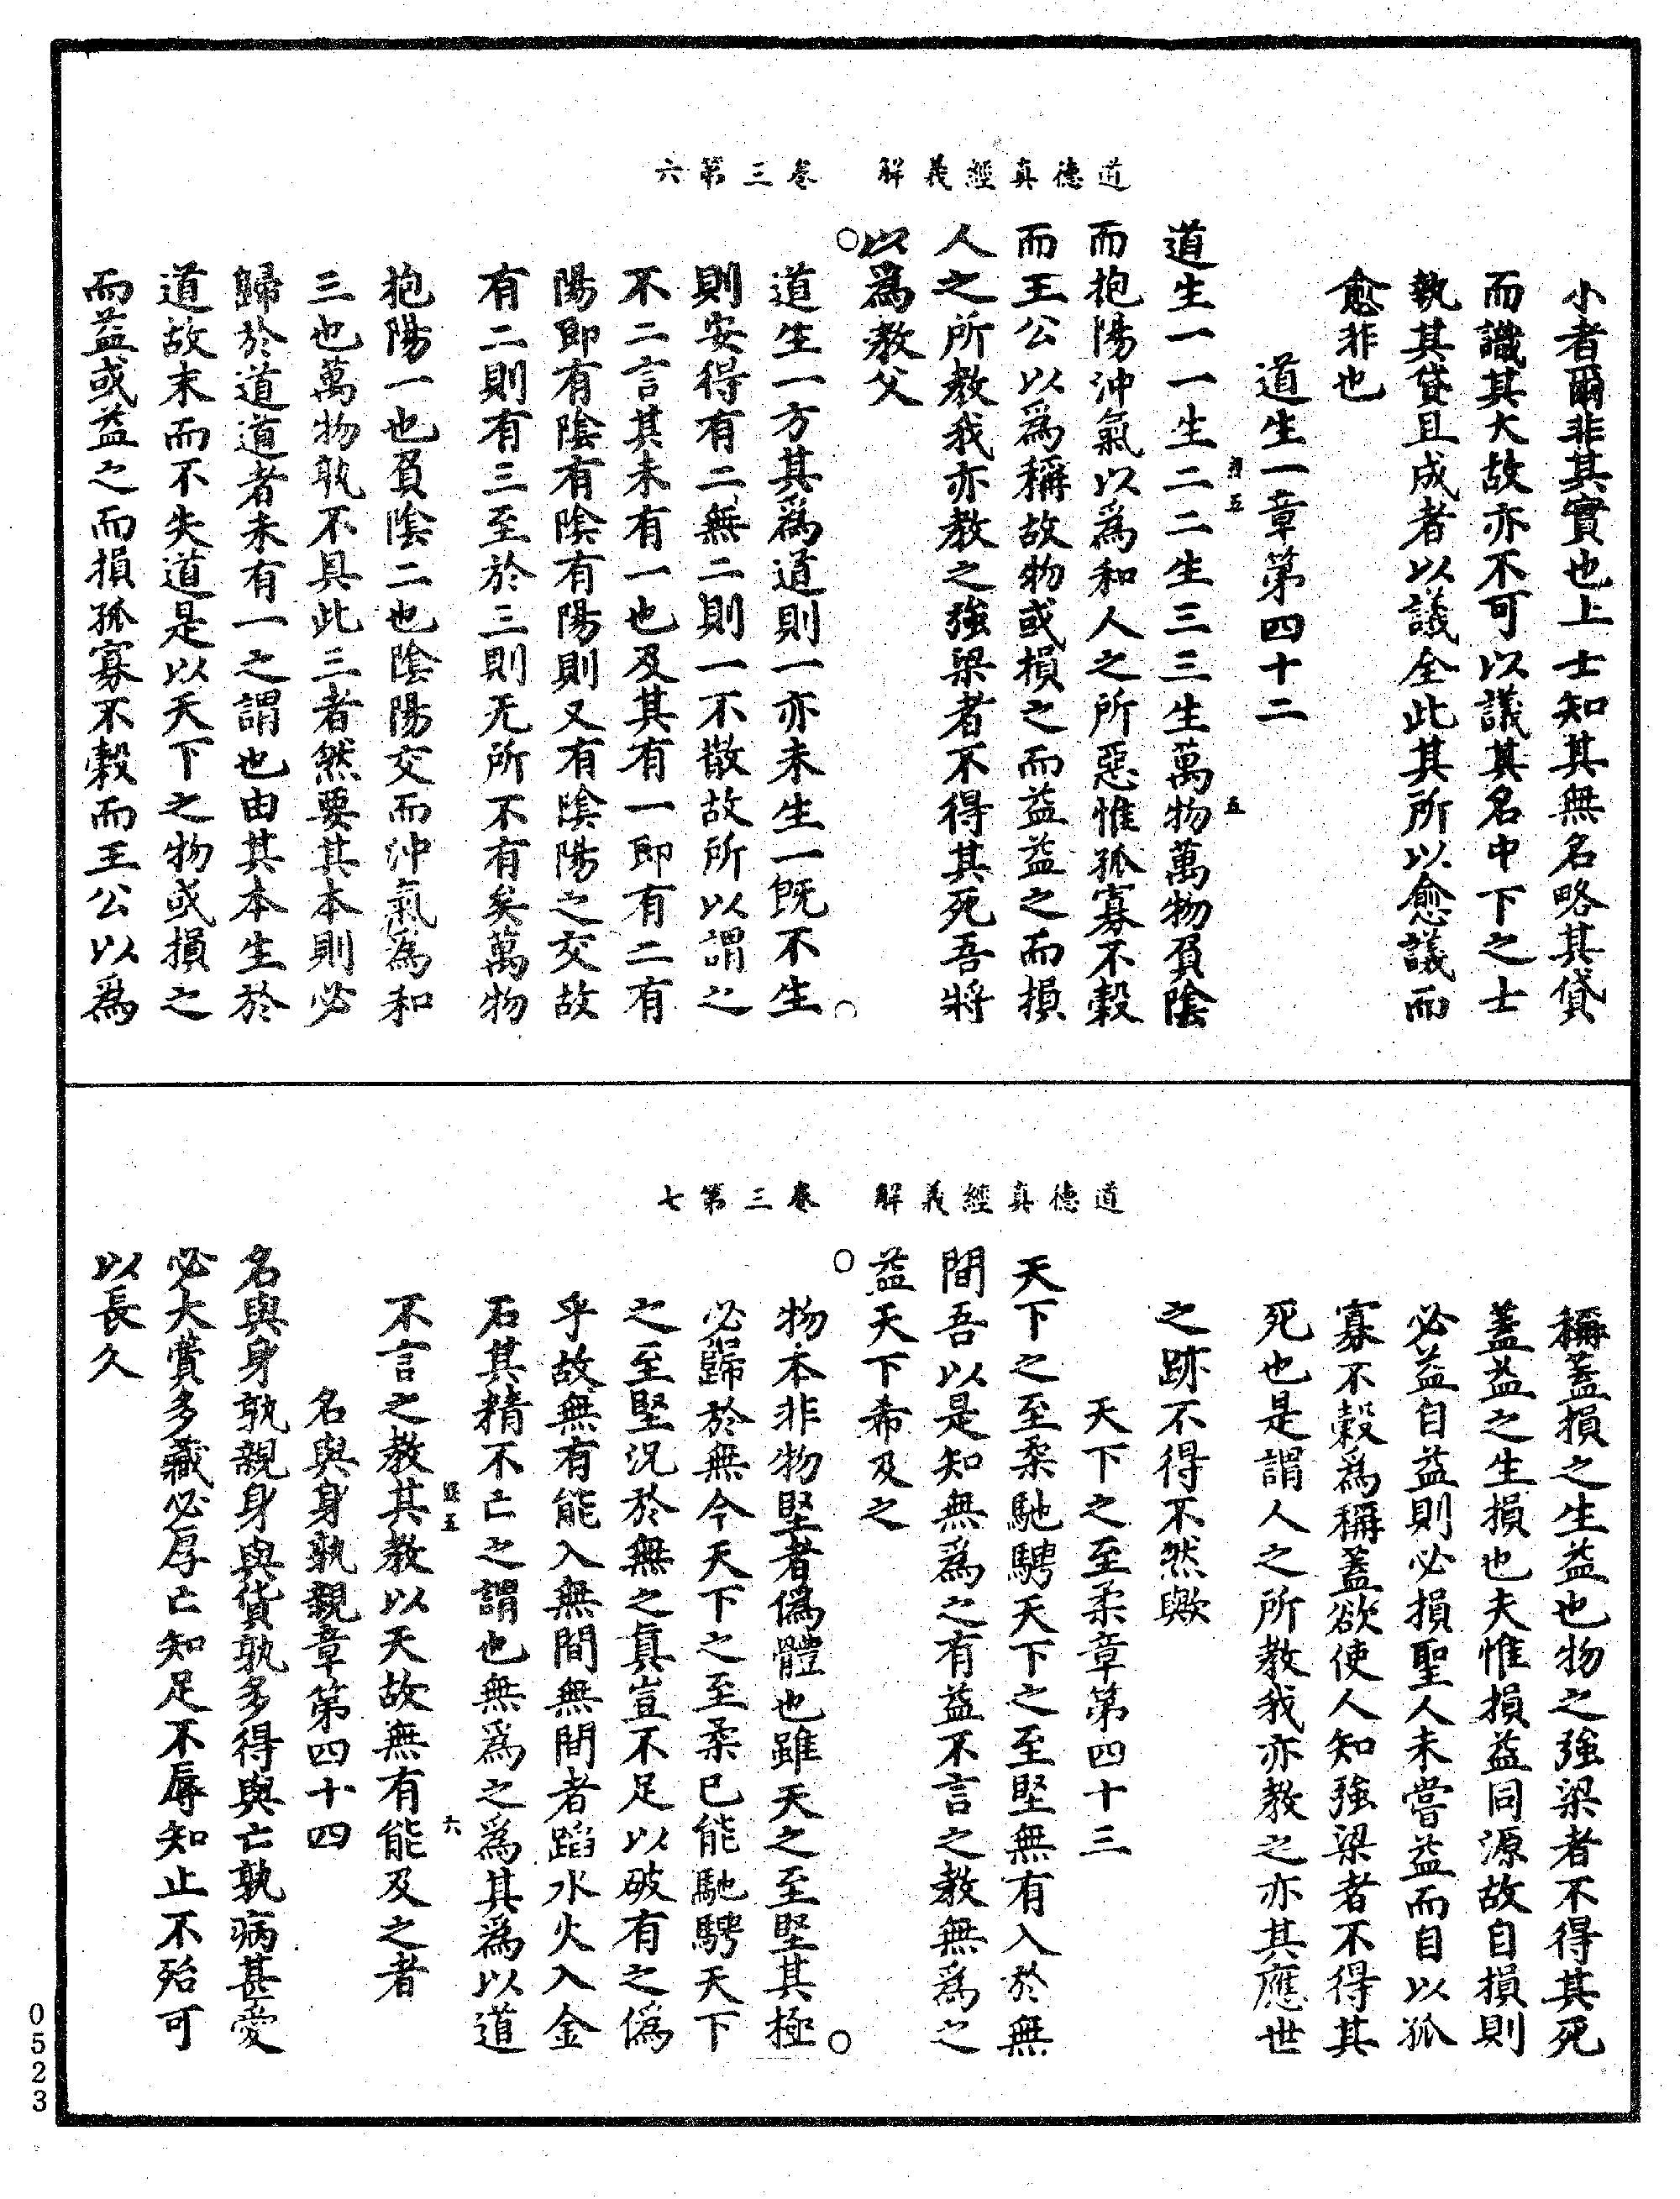 道德真經義解　卷三第六
小者爾非其實也上士知其無名略其貸
而識其大故亦不可以議其名中下之士
執其貸且成者以議全此其所以愈議而
愈非也
道生一章第四十二
五
道生一一生二二生三三生萬物萬物負陰
而抱陽沖氣以為和人之所惡惟孤寡不穀
而王公以為稱故物或損之而益益之而損
人之所教我亦教之強梁者不得其死吾將
以為教父
道生一方其為道則一亦未生一既不生
則安得有二無二則一不散故所以謂之
不二言其未有一也及其有一即有二有
陽即有陰有陰有陽則又有陰陽之交故
有二則有三至於三則无所不有矣萬物
抱陽一也負陰二也陰陽交而沖氣為和
三也萬物孰不具此三者然要其本則必
歸於道道者未有一之謂也由其本生於
道故末而不失道是以天下之物或損之
而益或益之而損孤寡不穀而王公以為
道德真經義解　卷三第七
稱蓋損之生益也物之強梁者不得其死
蓋益之生損也夫惟損益同源故自損則
必益自益則必損聖人未嘗益而自以孤
寡不穀為稱蓋欲使人知強梁者不得其
死也是謂人之所教我亦教之亦其應世
之跡不得不然歟
天下之至柔章第四十三
天下之至柔馳騁天下之至堅無有入於無
間吾以是知無為之有益不言之教無為之
益天下希及之
物本非物堅者偽體也雖天之至堅其極
必歸於無今天下之至柔已能馳騁天下
之至堅況於無之真豈不足以破有之偽
乎故無有能入無間無間者蹈水火入金
石其精不亡之謂也無為之為其為以道
六
不言之教其教以天故無有能及之者
名與身孰親章第四十四
名與身孰親身與貨孰多得與亡孰病甚愛
必大費多藏必厚亡知足不辱知止不殆可
以長久
0523